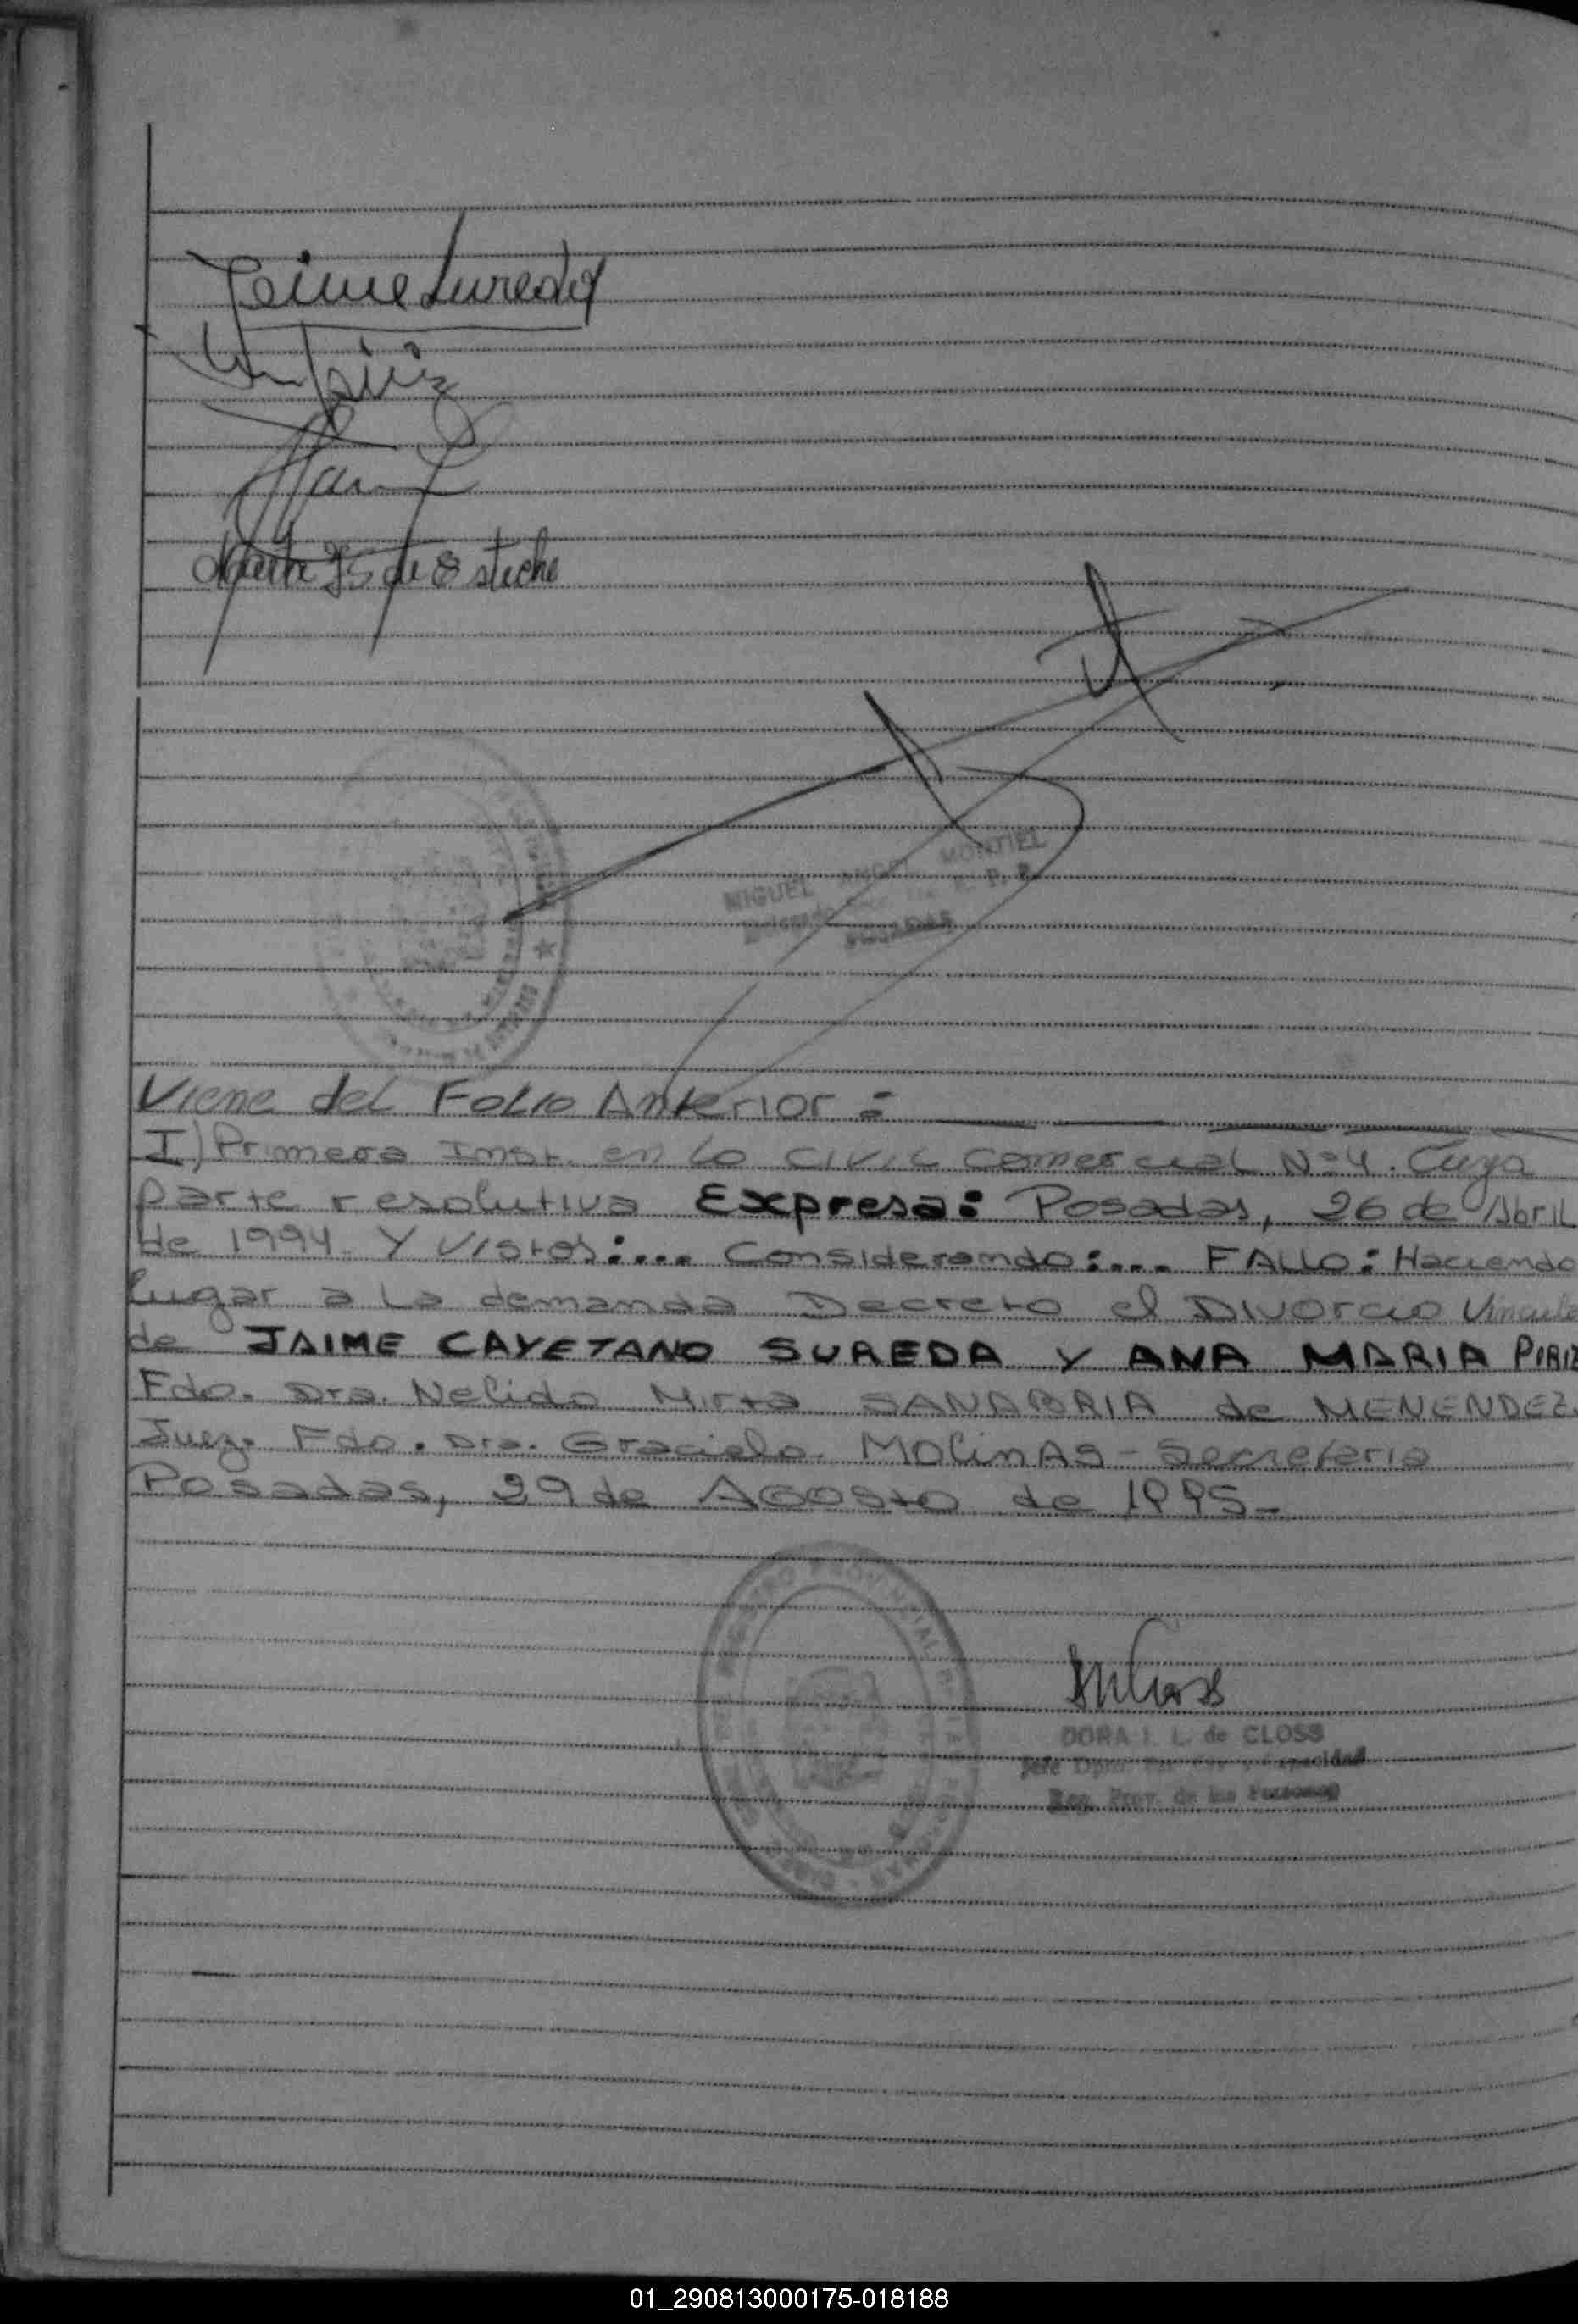 Jaime Sureda
MIGUEL ANGEL MONTIEL
R. P. P.
POSADAS
Viene del Folio Anterior =
I) Primera Inst. en Lo CIVIL Comercial Nº 4. Cuya
parte resolutiva Expresa: Posadas, 26 de Abril
de 1994. Y Vistos:... Considerando:... FALLO: Haciendo
lugar a La demanda Decreto el DIVORCIO Vincular
de JAIME CAYETANO SUREDA Y ANA MARIA PIRIZ
Fdo. Dra. Nelida Mirta SANABRIA de MENENDEZ.
Juez. Fdo. Dra. Graciela MOLINAS - Secretaria
Posadas, 29 de AGOSTO de 1995-
REGISTRO PROVINCIAL
DORA I. L. de CLOSS
Jefe Dpto. Capacidad
Reg. Prov. de las Personas
01_290813000175-018188